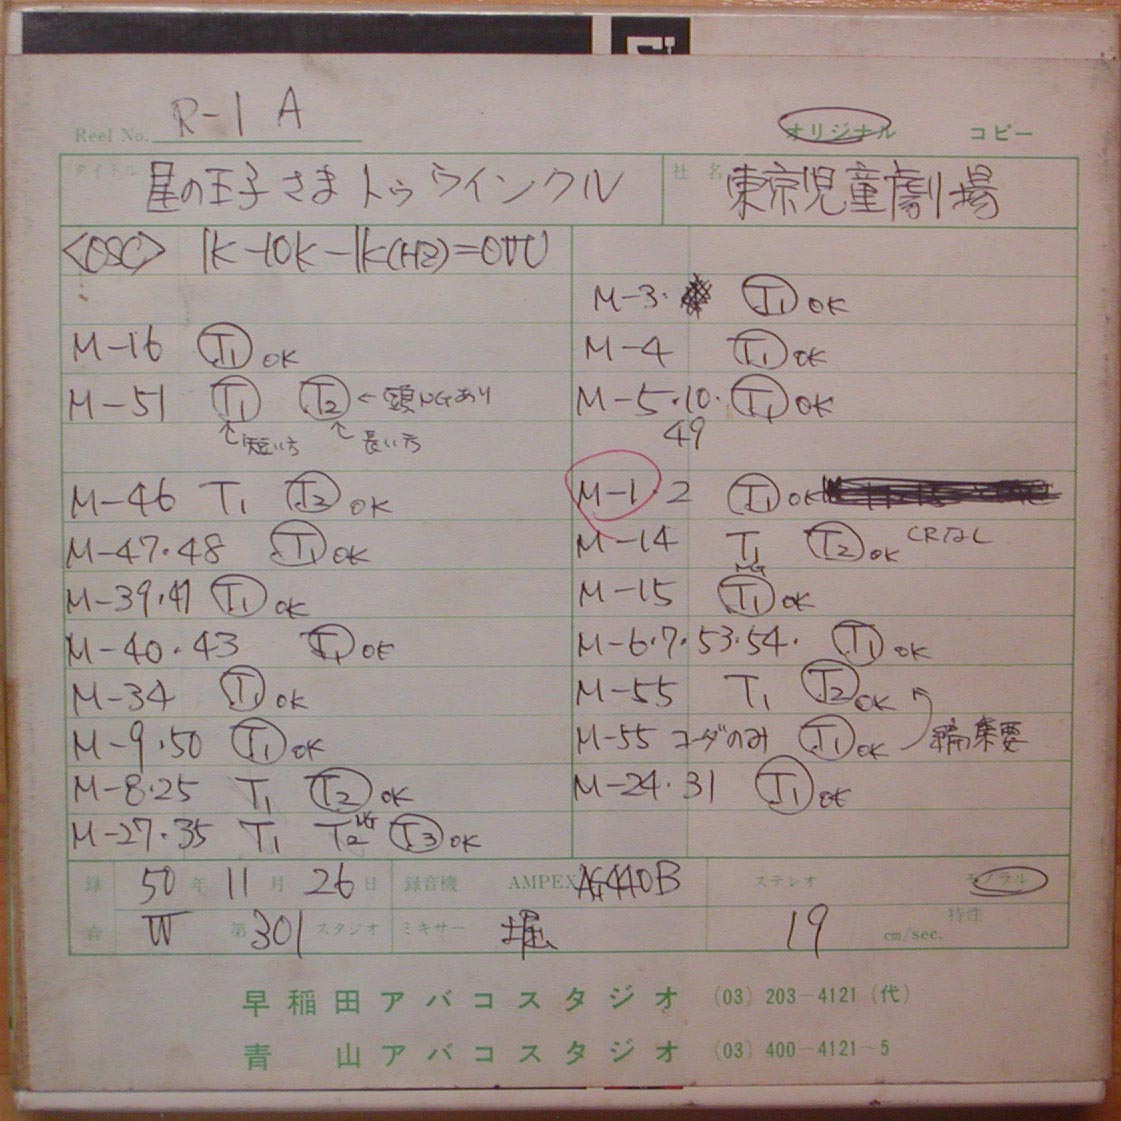 Reel No. R-1 A
オリジナル コピー
タイトル 星の王子さまトゥウインクル 社名 東京児童劇場
<OSC> 1K-10K-1K(HZ)=0VU
M-3. T1 OK
M-16 T1 OK
M-4 T1 OK
M-51 T1 T2 ←頭NGあり
M-5.10. T1 OK
↑短い方 ↑長い方
49
M-46 T1 T2 OK
M-1.2 T1 OK
M-47.48 T1 OK
M-14 T1 NG T2 OK CRなし
M-39.41 T1 OK
M-15 T1 OK
M-40.43 T1 OK
M-6.7.53.54. T1 OK
M-34 T1 OK
M-55 T1 T2 OK
M-9.50 T1 OK
M-55 コーダのみ T1 OK 編集要
M-8.25 T1 T2 OK
M-24.31 T1 OK
M-27.35 T1 T2 NG T3 OK
録音 50年 11月 26日 録音機 AMPEX AG440B ステレオ モノラル
W 第301スタジオ ミキサー 堀 19 cm/sec. 特性
早稲田アバコスタジオ (03) 203-4121 (代)
青山アバコスタジオ (03) 400-4121~5